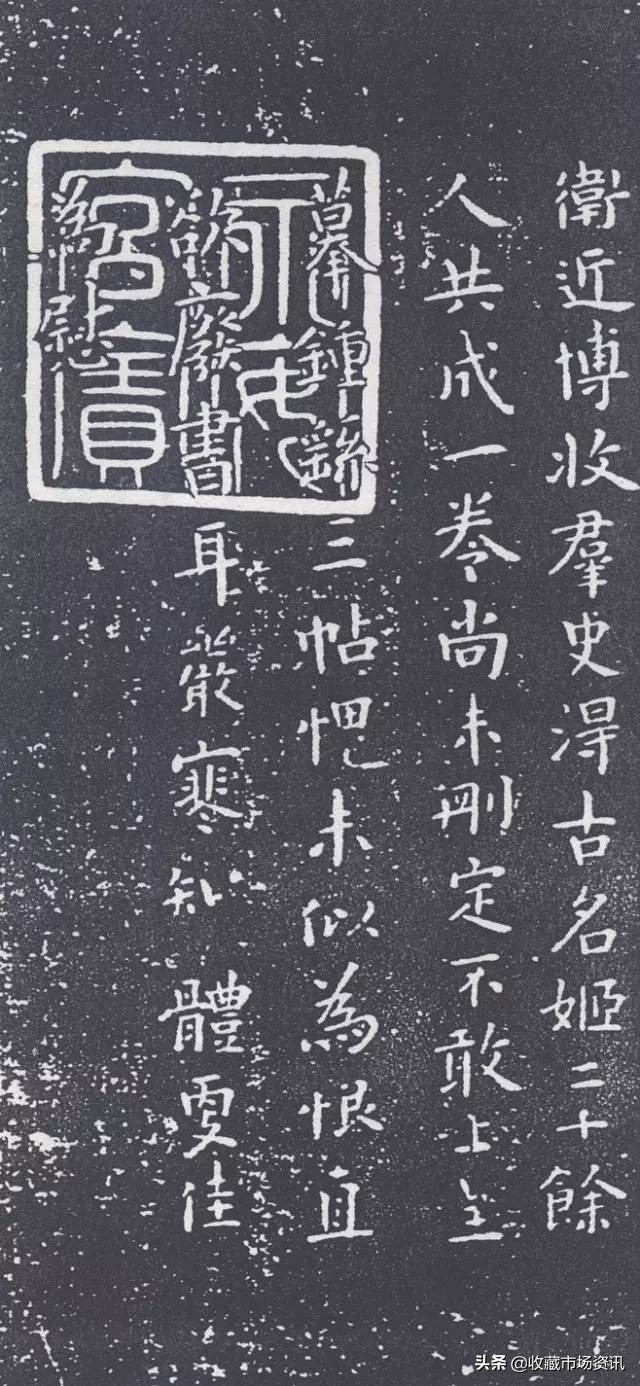 衛近博收羣史淂古名姬二十餘
人共成一卷尚未刪定不敢上呈
摹鍾繇三帖愧未似為恨直
欲廢書耳嚴寒知 體更佳
為慰
头条 @收藏市场资讯